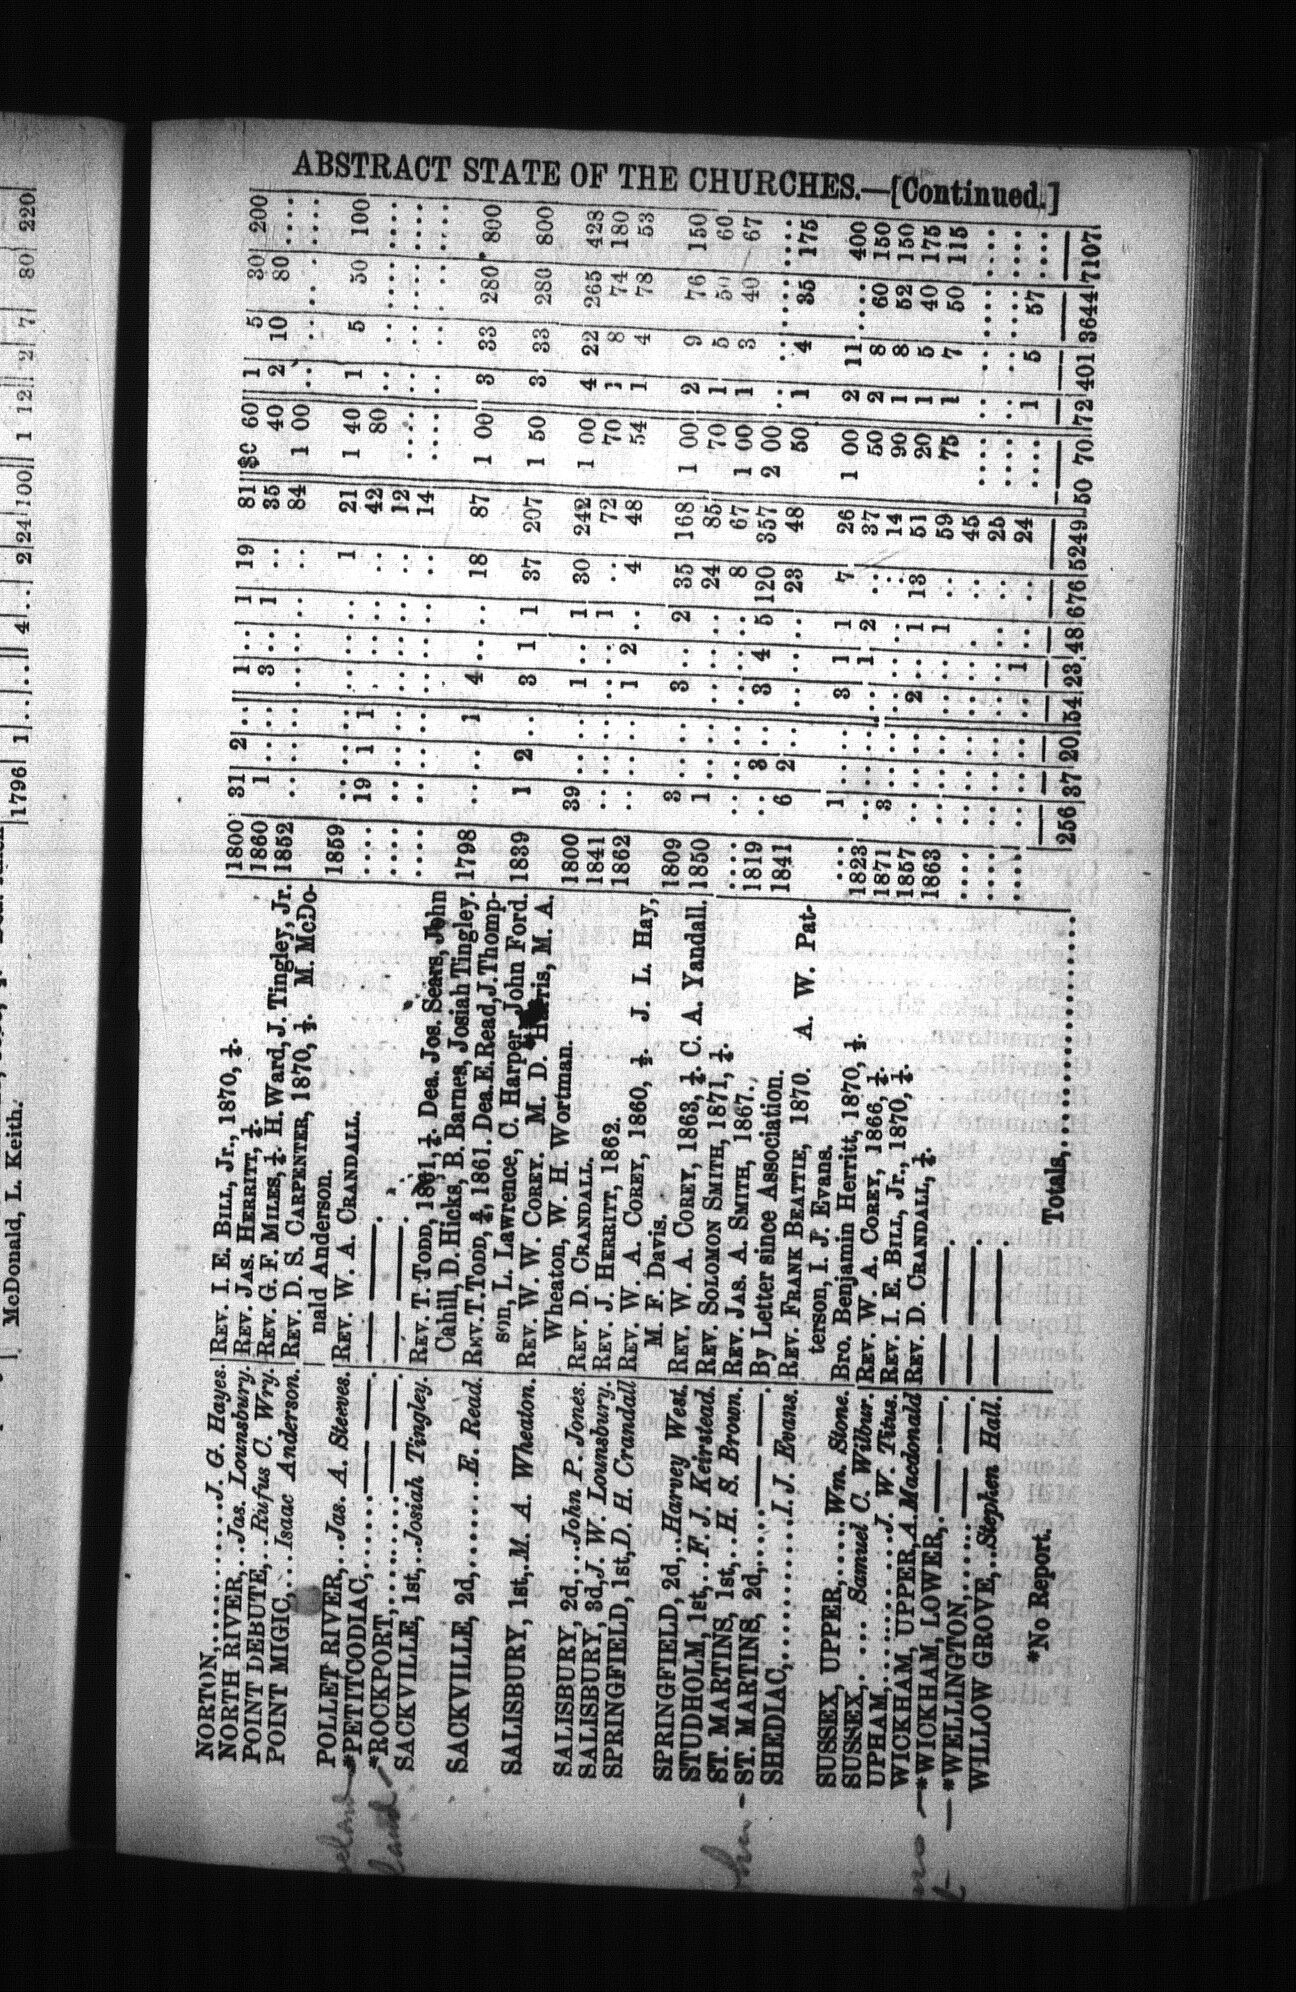 ABSTRACT STATE OF THE CHURCHES.—[Continued.]
NORTON,..........J. G. Hayes. REV. I. E. BILL, Jr., 1870, ½. 1800 31 2 .. 1 .. 1 19 81 $0 60 1 5 30 200
NORTH RIVER,...Jas. Lounsbury. REV. JAS. HERRITT, ½. 1860 1 .. .. 3 .. 1 .. 35 40 2 10 80 ....
POINT DEBUTE,...Rufus C. Wry. REV. G. F. MILES, ½. H. Ward, J. Tingley, Jr. 1852 .. .. .. .. .. .. .. 84 1 00 .. .. .. ....
POINT MIGIC,...Isaac Anderson. REV. D. S. CARPENTER, 1870, ½. M. McDo-
nald Anderson. 1859 .. .. .. .. .. .. 1 21 1 40 1 5 50 100
POLLET RIVER,...Jas. A. Steeves. REV. W. A. CRANDALL. .... 19 1 1 .. .. .. .. 42 80 .. .. .. ....
*PETITCODIAC,...... —— —— .... .. .. .. .. .. .. .. 12 .... .. .. .. ....
*ROCKPORT,...... —— —— .... .. .. .. .. .. .. .. 14 .... .. .. .. ....
SACKVILLE, 1st,...Josiah Tingley. REV. T. TODD, 1861, ½, Dea. Jos. Sears, John
Cahill, D. Hicks, B. Barnes, Josiah Tingley. 1798 .. .. 1 4 .. .. 18 87 1 00 3 33 280 800
SACKVILLE, 2d,......E. Read. REV. T. TODD, ½, 1861. Dea. E. Read, J. Thomp-
son, L. Lawrence, C. Harper, John Ford. 1839 1 2 .. 3 1 1 37 207 1 50 3 33 280 800
SALISBURY, 1st,..M. A. Wheaton. REV. W. W. COREY. M. D. Harris, M A.
Wheaton, W. H. Wortman. 1800 39 .. .. 1 .. 1 30 242 1 00 4 22 265 428
SALISBURY, 2d,...John P. Jones. REV. D. CRANDALL. 1841 .. .. .. .. .. 1 .. 72 70 1 8 74 180
SALISBURY, 3d, J. W. Lounsbury. REV. J. HERRITT, 1862. 1862 .. .. .. 1 2 .. 4 48 54 1 4 78 53
SPRINGFIELD, 1st, D. H. Crandall REV. W. A. COREY, 1860, ½. J. L. Hay,
M. F. Davis. 1809 3 .. .. 3 .. 2 35 168 1 00 2 9 76 150
SPRINGFIELD, 2d, Harvey West. REV. W. A. COREY, 1863, ½. C. A. Yandall. 1850 1 .. .. .. .. .. 24 85 70 1 5 50 60
STUDHOLM, 1st,..F. J. Keirstead. REV. SOLOMON SMITH, 1871, ½. .... .. .. .. .. .. .. 8 67 1 00 1 3 40 67
ST. MARTINS, 1st,...H. S. Brown. REV. JAS. A. SMITH, 1867., 1819 .. 3 .. 3 4 5 120 357 2 00 .. .. .... ....
ST. MARTINS, 2d,.....—— By Letter since Association. 1841 6 2 .. .. .. .. 23 48 50 1 4 35 175
SHEDIAC,..........I. J. Evans. REV. FRANK BEATTIE, 1870. A. W. Pat-
terson, I. J. Evans. .... 1 .. .. 3 1 1 7 26 1 00 2 11 .... 400
SUSSEX, UPPER,......Wm. Stone. Bro. Benjamin Herritt, 1870, ½. 1823 .. .. .. .. 1 2 .. 37 50 2 8 60 150
SUSSEX,..... Samuel C. Wilbur. REV. W. A. COREY, 1866, ½. 1871 3 .. .. .. .. .. .. 14 90 1 8 52 150
UPHAM,..........J. W. Titus. REV. I. E. BILL, Jr., 1870, ½. 1857 .. .. .. 2 .. 1 13 51 20 1 5 40 175
WICKHAM, UPPER, A Macdonald REV. D. CRANDALL, ½. 1863 .. .. .. .. .. 1 .. 59 75 1 7 50 115
*WICKHAM, LOWER, —— —— .... .. .. .. .. .. .. .. 45 .... .. .. .... ....
*WELLINGTON,...... —— —— .... .. .. .. .. .. .. .. 25 .... .. .. .... ....
WILLOW GROVE, Stephen Hall. —— .... .. .. .. .. 1 .. .. 24 .... 1 5 57 ....
*No Report. Totals,.............. 256 37 20 54 23 48 676 5249 50 70 72 401 3644 7107
McDonald, L. Keith. 1796 1 4 2 24 100 1 12 2 7 80 220